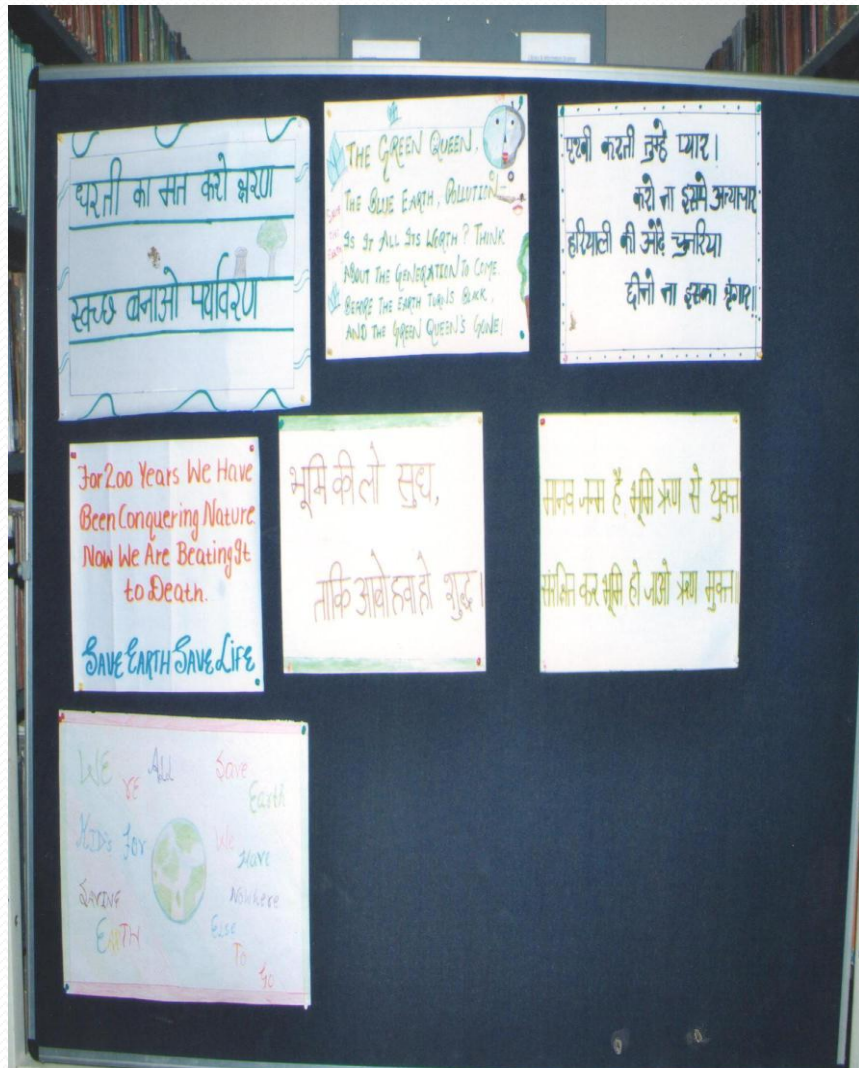 धरती का मत करो क्षरण
स्वच्छ बनाओ पर्यावरण
THE GREEN QUEEN,
THE BLUE EARTH, POLLUTION-
IS IT ALL ITS WORTH? THINK
ABOUT THE GENERATION TO COME.
BEFORE THE EARTH TURNS BLACK,
AND THE GREEN QUEEN'S GONE!
पृथ्वी करती तुम्हे प्यार।
करो ना इसमे अत्याचार
हरियाली की ओढ़े चुनरिया
छीनो ना इसका श्रृंगार॥
For 200 Years We Have
Been Conquering Nature
Now We Are Beating It
to Death.
SAVE EARTH SAVE LIFE
भूमि की लो सुध,
ताकि आबो हवा हो शुद्ध।
मानव जन्म है भूमि ऋण से युक्त
संरक्षित कर भूमि हो जाओ ऋण मुक्त॥
WE 'RE ALL
KID's for
SAVING
EARTH
Save
Earth
We
Have
Nowhere
Else
To
Go